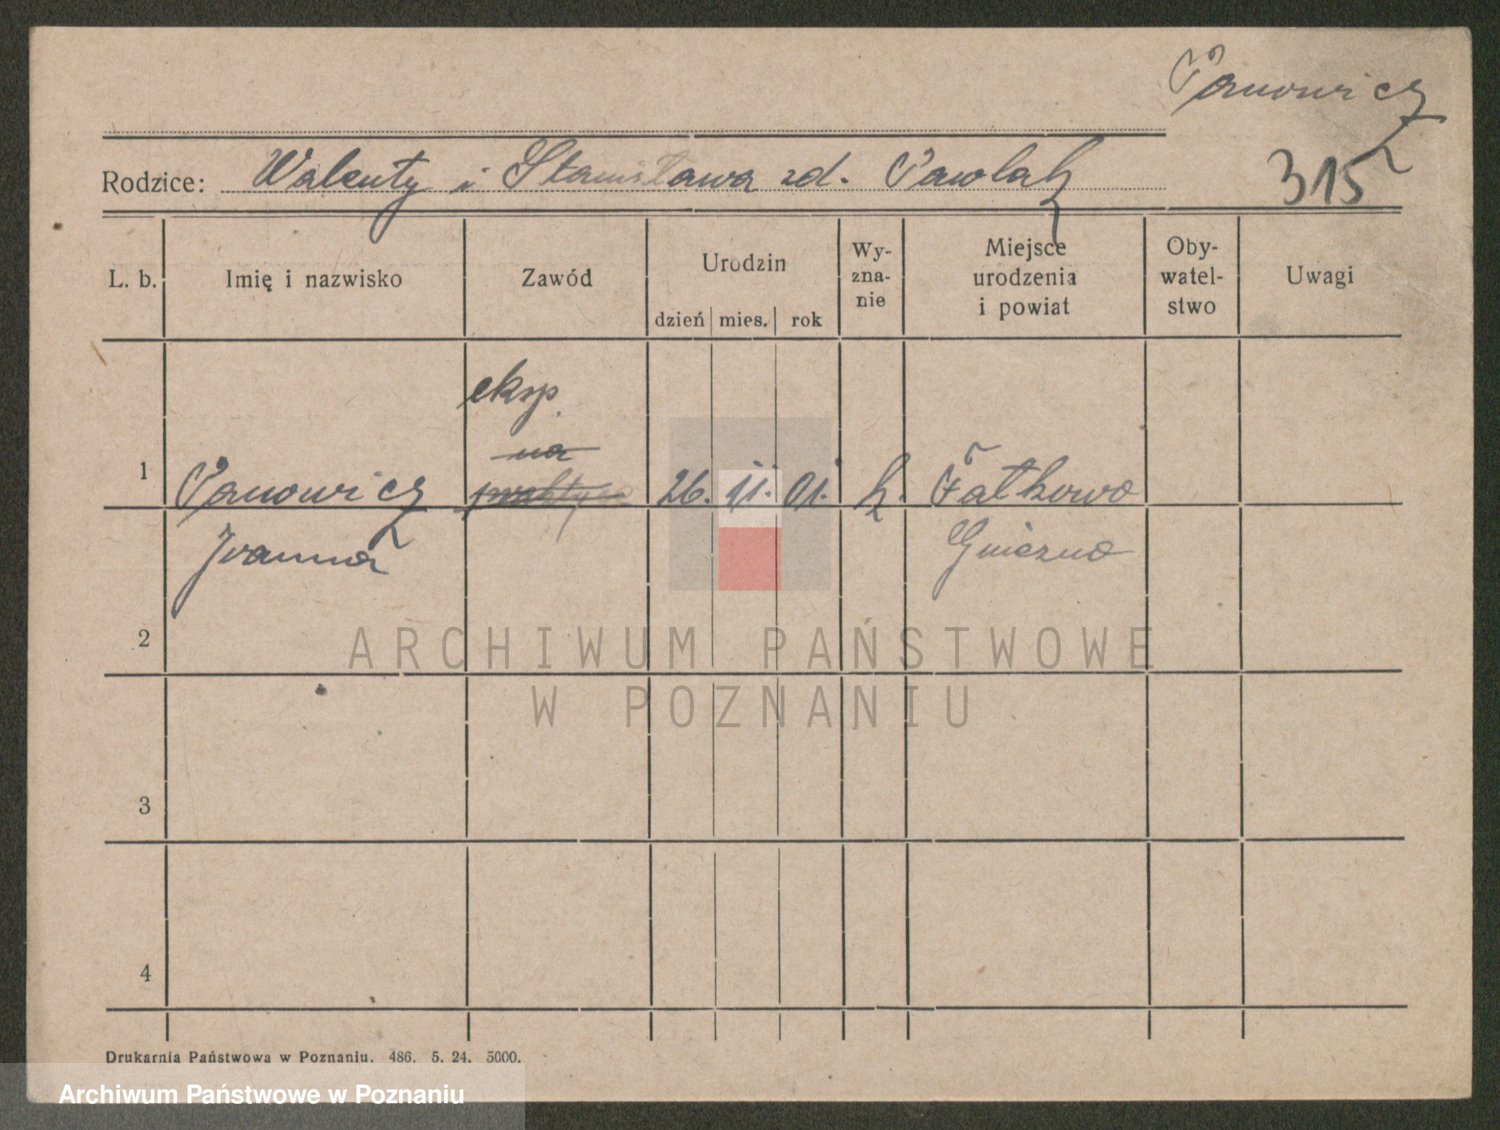 Panowicz
315
Rodzice: Walenty i Stanisława zd. Pawlak
L. b.
Imię i nazwisko
Zawód
Urodzin
dzień mies. rok
Wy-
zna-
nie
Miejsce
urodzenia
i powiat
Oby-
watel-
stwo
Uwagi
eksp.
na
1 Panowicz 26. 11. 01. k. Fałkowo
Joanna Gniezno
2
3
4
ARCHIWUM PAŃSTWOWE
W POZNANIU
Drukarnia Państwowa w Poznaniu. 486. 5. 24. 5000.
Archiwum Państwowe w Poznaniu